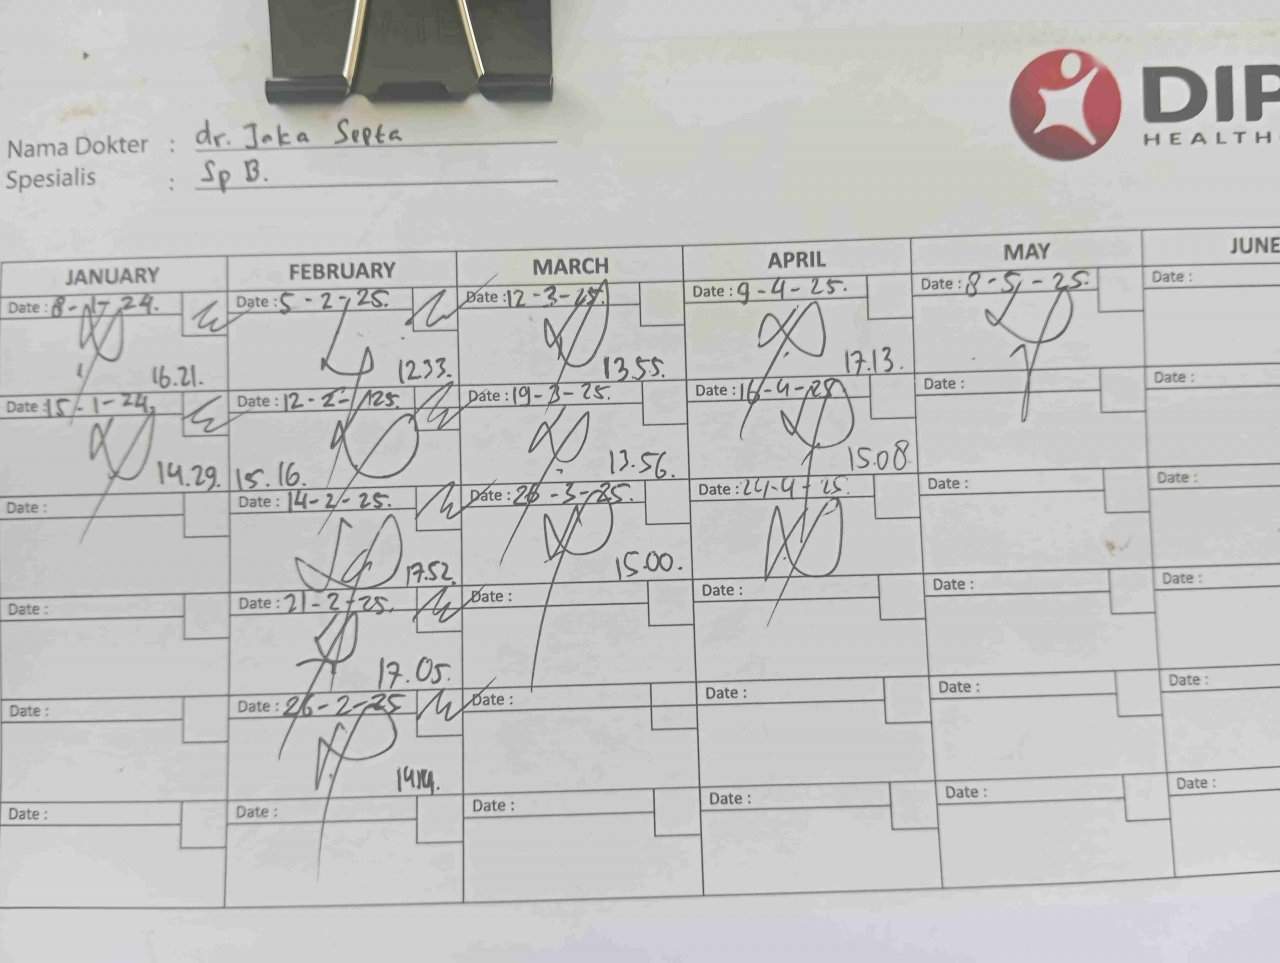 DIP
HEALTH
Nama Dokter : dr. Jaka Septa
Spesialis : Sp B.
JANUARY FEBRUARY MARCH APRIL MAY JUNE
Date : 8-1-24. Date : 5-2-25. Date : 12-3-25. Date : 9-4-25. Date : 8-5-25. Date :
16.21. 1233. 13.55. 17.13.
Date : 15-1-24. Date : 12-2-25. Date : 19-3-25. Date : 16-4-25 Date : Date :
14.29. 15.16. 13.56. 15.08
Date : Date : 14-2-25. Date : 26-3-25. Date : 24-4-25. Date : Date :
17.52. 15.00.
Date : Date : 21-2-25. Date : Date : Date : Date :
17.05.
Date : Date : 26-2-25 Date : Date : Date : Date :
Date : Date : Date : Date : Date : Date :